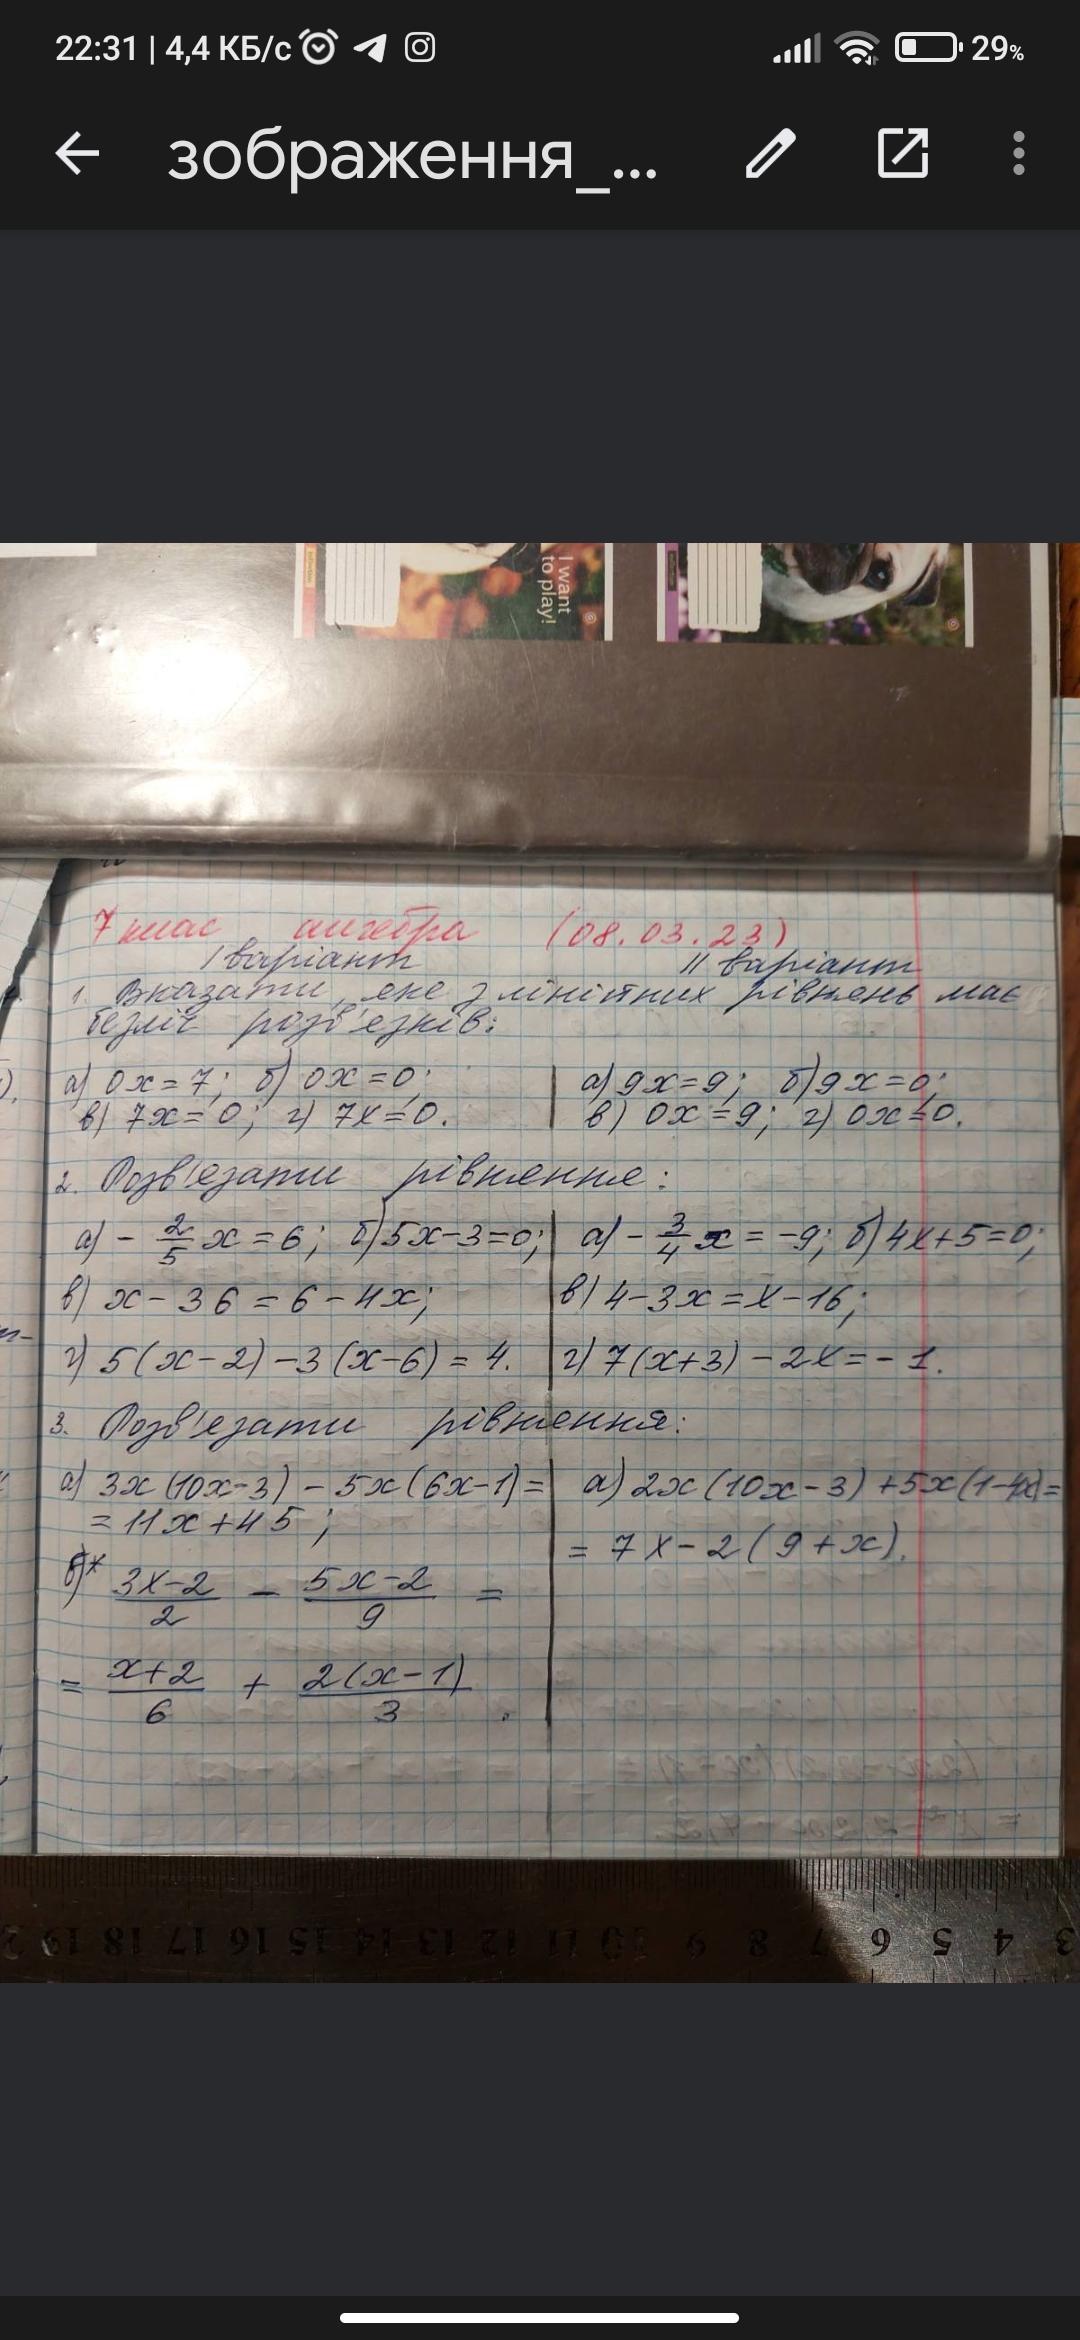 22:31 | 4,4 КБ/с
29%
зображення_...
I want
to play!
7 клас алгебра (08.03.23)
I варіант II варіант
1. Вказати, яке з лінійних рівнянь має
безліч розв'язків:
а) 0x = 7; б) 0x = 0; а) 9x = 9; б) 9x = 0;
в) 7x = 0; г) 7x = 0. в) 0x = 9; г) 0x = 0.
2. Розв'язати рівняння:
а) - 2/5 x = 6; б) 5x - 3 = 0; а) - 3/4 x = -9; б) 4x + 5 = 0;
в) x - 36 = 6 - 4x; в) 4 - 3x = x - 16;
г) 5(x - 2) - 3(x - 6) = 4. г) 7(x + 3) - 2x = - 1.
3. Розв'язати рівняння:
а) 3x(10x - 3) - 5x(6x - 1) = а) 2x(10x - 3) + 5x(1 - 4x) =
= 11x + 45; = 7x - 2(9 + x).
б)* 3x-2/2 - 5x-2/9 =
= x+2/6 + 2(x-1)/3 .
19 18 17 16 15 14 13 12 11 10 9 8 7 6 5 4 3